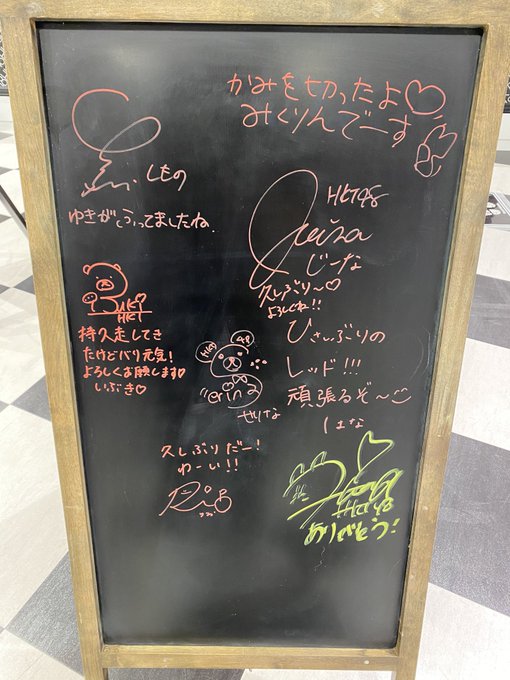 かみを切ったよ♡
みくりんでーす
しもの
ゆきがふってましたね.
HKT48
じーな
久しぶり〜♡
よろしくね!!
IBUKI
HKT
持久走してき
たけどバリ元気!
よろしくお願します♡
いぶき♡
ひさしぶりの
レッド!!!
頑張るぞ〜
はな
HKT
48
erina
せりな
久しぶりだー!
わーい!!
HKT48
ありがとう!